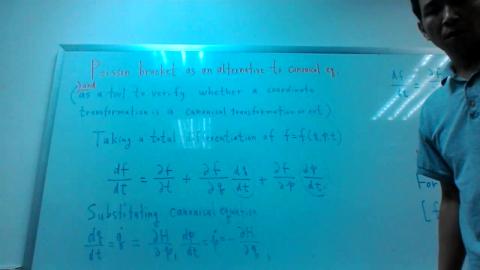 Poisson bracket as an alternative to canonical eq.
and
(as a tool to verify whether a coordinate
transformation is a canonical transformation or not)
Taking a total differentiation of f=f(q,p,t)
df/dt = ∂f/∂t + ∂f/∂q dq/dt + ∂f/∂p dp/dt
Substituting canonical equation
dq/dt = q̇ = ∂H/∂p, dp/dt = ṗ = -∂H/∂q,
df/dt = ∂f
For
[f